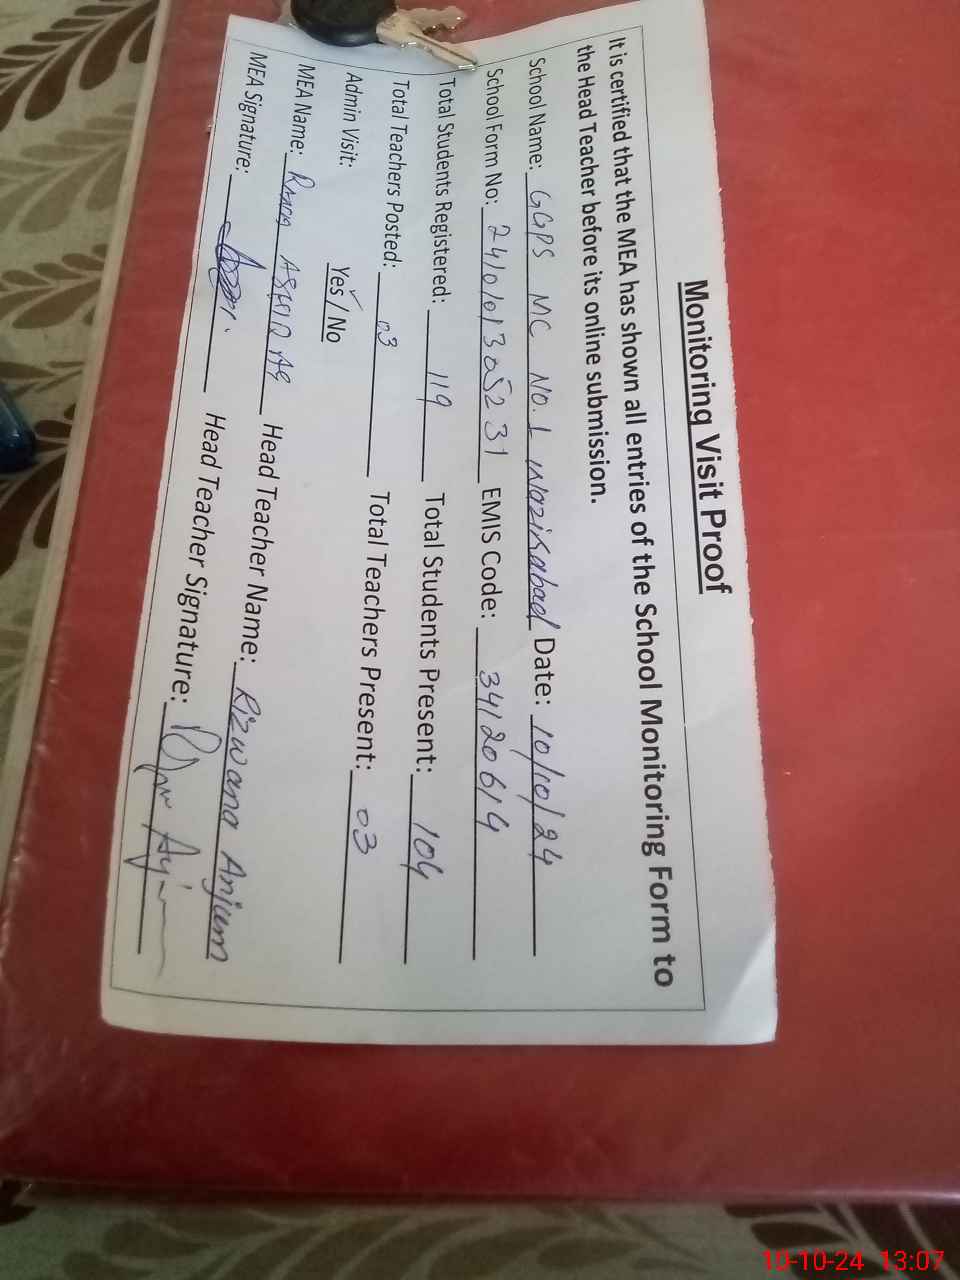 Monitoring Visit Proof
It is certified that the MEA has shown all entries of the School Monitoring Form to
the Head Teacher before its online submission.
School Name: GGPS MC NO.1 Wazirabad Date: 10/10/24
School Form No: 2410101305231 EMIS Code: 34120614
Total Students Registered: 119 Total Students Present: 104
Total Teachers Posted: 03 Total Teachers Present: 03
Admin Visit: Yes / No
MEA Name: Rana ASHIQ Ali Head Teacher Name: Rizwana Anjum
MEA Signature: Head Teacher Signature:
10-10-24 13:07